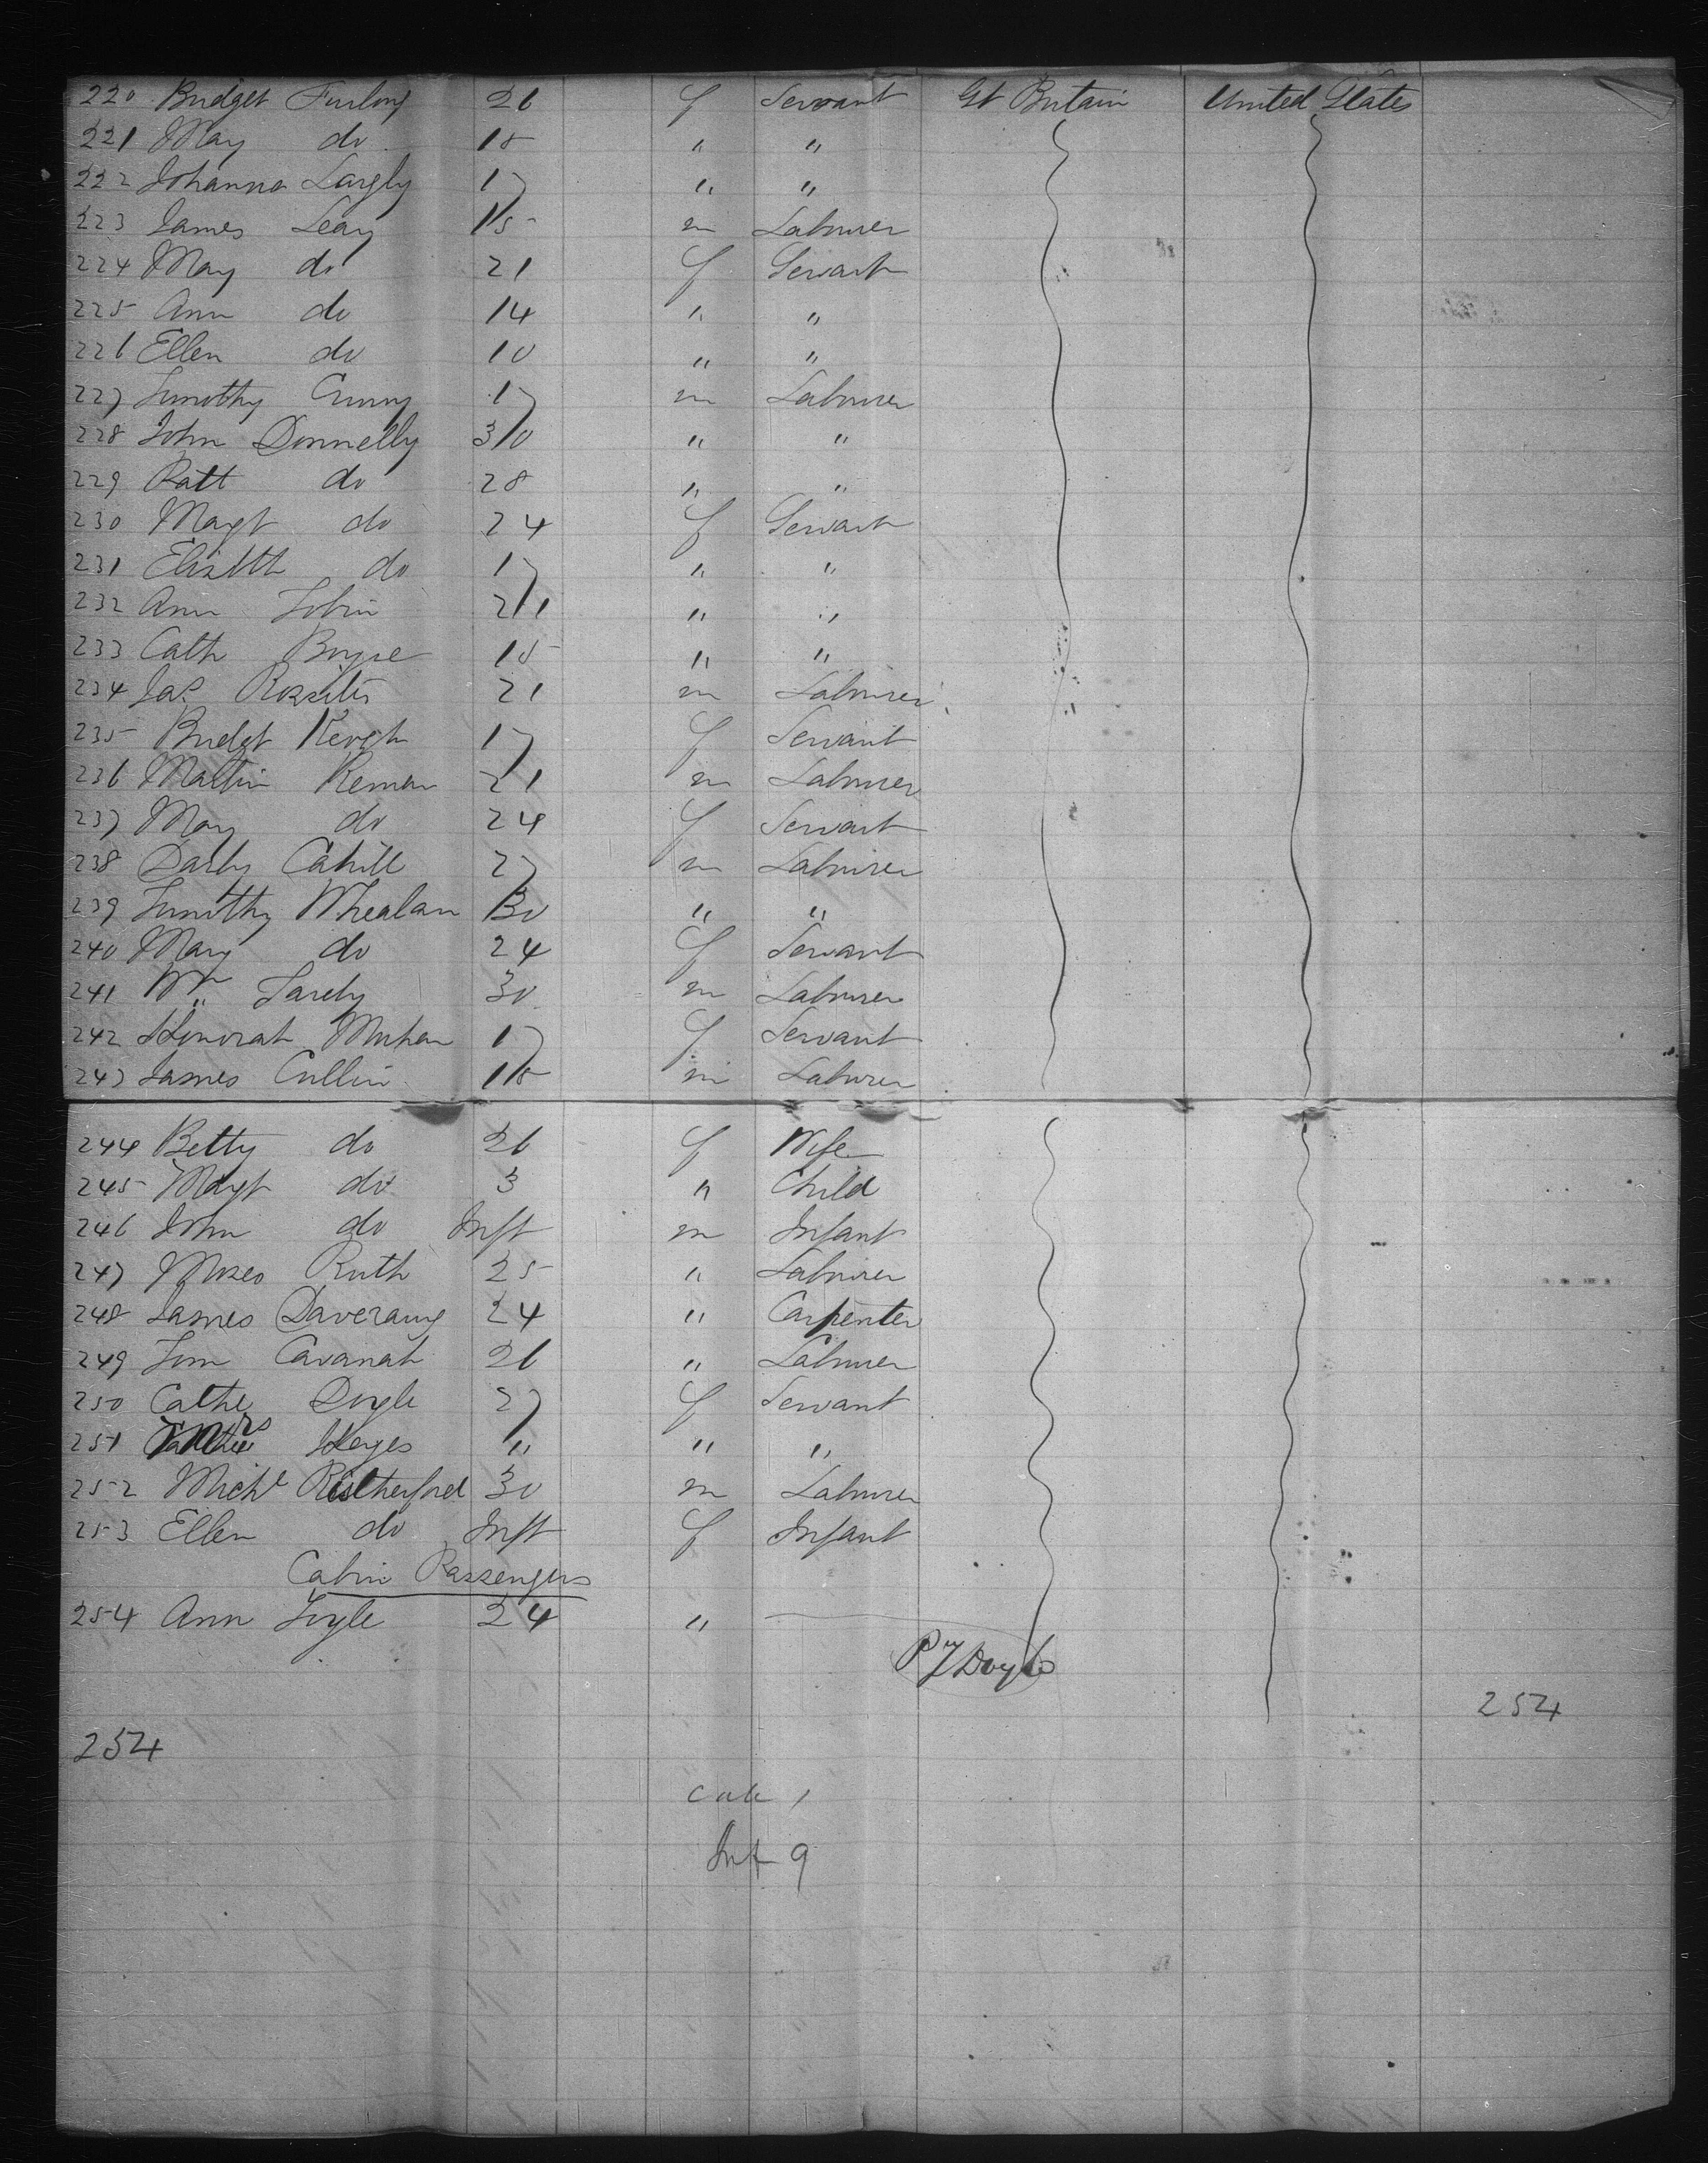 220 Bridget Furlong 26 f Servant Gt Britain United States
221 Mary do 18 " "
222 Johanna Largly 17 " "
223 James Leary 15 m Labourer
224 Mary do 21 f Servant
225 Ann do 14 " "
226 Ellen do 10 " "
227 Timothy 17 m Labourer
228 John Donnelly 30 " "
229 Patt do 28 " "
230 Magt do 24 f Servant
231 Elizbth do 17 " "
232 Ann Tobin 21 " "
233 Cath Byrne 18 " "
234 Jas Rossiter 21 m Labourer
235 Bridgt Keogh 17 f Servant
236 Martin 21 m Labourer
237 Mary do 24 f Servant
238 Darby Cahill 27 m Labourer
239 Timothy Whealan 30 " "
240 Mary do 24 f Servant
241 Wm 30 m Labourer
242 Honorah 17 f Servant
243 James Cullin 18 m Laburer
244 Betty do 26 f Wife
245 Magt do 3 " Child
246 John do Inft m Infant
247 Moses Ruth 25 " Labourer
248 James 24 " Carpenter
249 Tim Cavanah 26 " Labourer
250 Cathe Doyle 27 f Servant
251 Mrs Heyes " " "
252 Michl Rutherford 30 m Labourer
253 Ellen do Inft f Infant
Cabin Passengers
254 Ann Foyle 24 "
P J Doyle
254
254
Cab 1
Inf 9